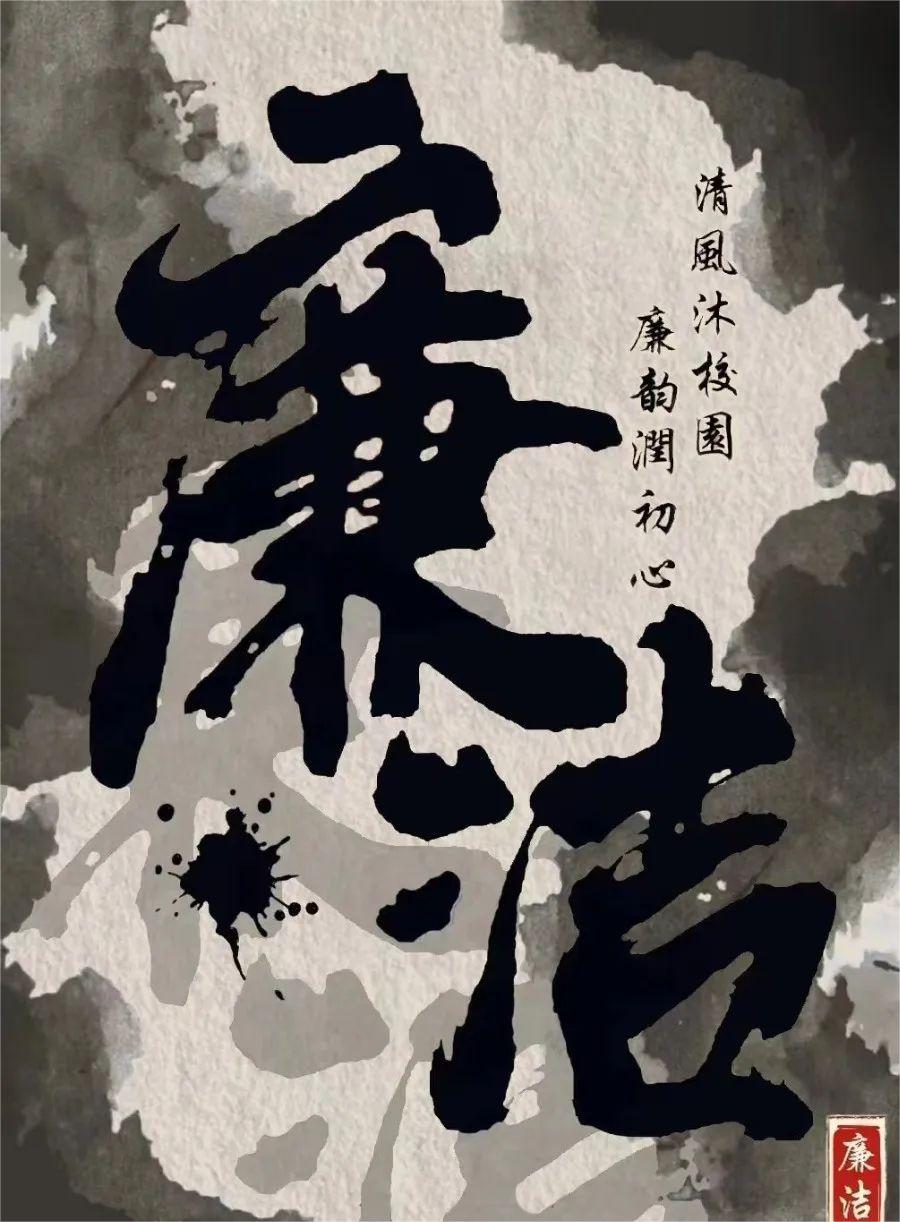 廉洁
清風沐校園
廉韵潤初心
廉洁